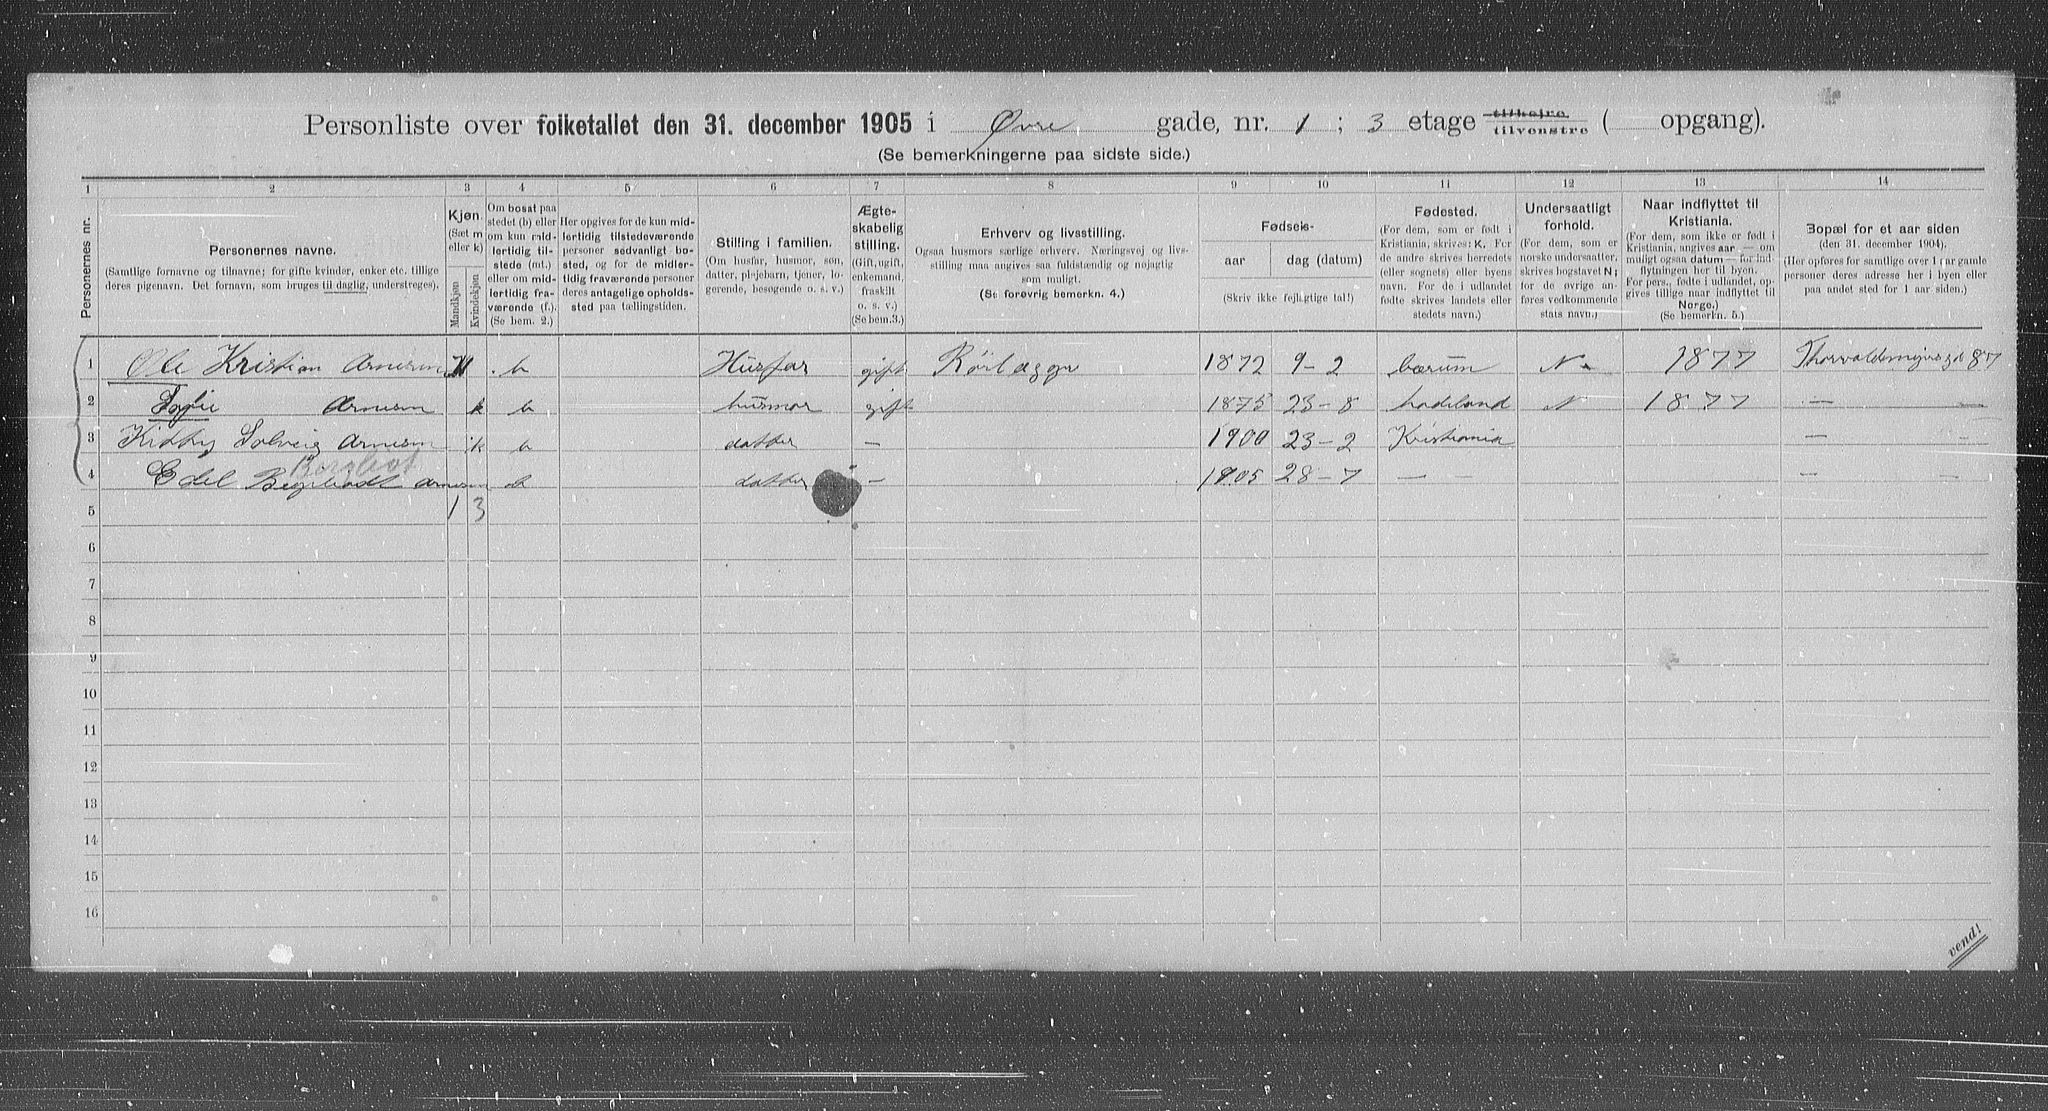 Personliste over folketallet den 31. december 1905 i Øvre gade, nr. 1 ; 3 etage tilhøjre tilvenstre ( opgang).
(Se bemerkningerne paa sidste side.)
1 2 3 4 5 6 7 8 9 10 11 12 13 14
Personernes nr.
Personernes navne.
(Samtlige fornavne og tilnavne; for gifte kvinder, enker etc. tillige
deres pigenavn. Det fornavn, som bruges til daglig, understreges).
Kjøn.
(Sæt m
eller k)
Mandkjøn
Kvindekjøn
Om bosat paa
stedet (b) eller
om kun mid-
lertidig til-
stede (mt.)
eller om mid-
lertidig fra-
værende (f.).
(Se bem. 2.)
Her opgives for de kun mid-
lertidig tilstedeværende
personer sedvanligt bo-
sted, og for de midler-
tidig fraværende personer
deres antagelige opholds-
sted paa tællingstiden.
Stilling i familien.
(Om husfar, husmor, søn,
datter, plejebarn, tjener, lo-
gerende, besøgende o. s. v.)
Ægte-
skabelig
stilling.
(Gift, ugift,
enkemand,
fraskilt
o. s. v.)
(Se bem.3.)
Erhverv og livsstilling.
Ogsaa husmors særlige erhverv. Næringsvej og livs-
stilling maa angives saa fuldstændig og nøjagtig
som muligt.
(Se forøvrig bemerkn. 4.)
Fødsels-
aar dag (datum)
(Skriv ikke fejlagtige tal!)
Fødested.
(For dem, som er født i
Kristiania, skrives: K. For
de andre skrives herredets
(eller sognets) eller byens
navn. For de i udlandet
fødte skrives landets eller
stedets navn.)
Undersaatligt
forhold.
(For dem, som er
norske undersaatter.
skrives bogstavet N;
for de øvrige an-
føres vedkommende
stats navn.)
Naar indflyttet til
Kristiania.
(For dem, som ikke er født i
Kristiania, angives aar — om
muligt ogsaa datum — for ind-
flytningen her til byen.
For pers., fødte i udlandet, op-
gives tillige naar indflyttet til
Norge.)
(Se bemerkn. 5.)
Bopæl for et aar siden
(den 31. december 1904).
(Her opføres for samtlige over 1 aar gamle
personer deres adresse her i byen eller
paa andet sted for 1 aar siden.)
1 Ole Kristian Arnesen M b Husfar gift Rörlægger 1872 9-2 bærum N 1877 Thorvaldsmeyersgd 87
2 Sofie Arnesen k b husmor gift 1875 23-8 hadeland N 1877 —
3 Solveig Arnesen k b datter — 1900 23-2 Kristiania — -
4 Edel Bergliot Arnesen b datter — 1905 28-7 — — — —
5 1 3
6
7
8
9
10
11
12
13
14
15
16
vend!